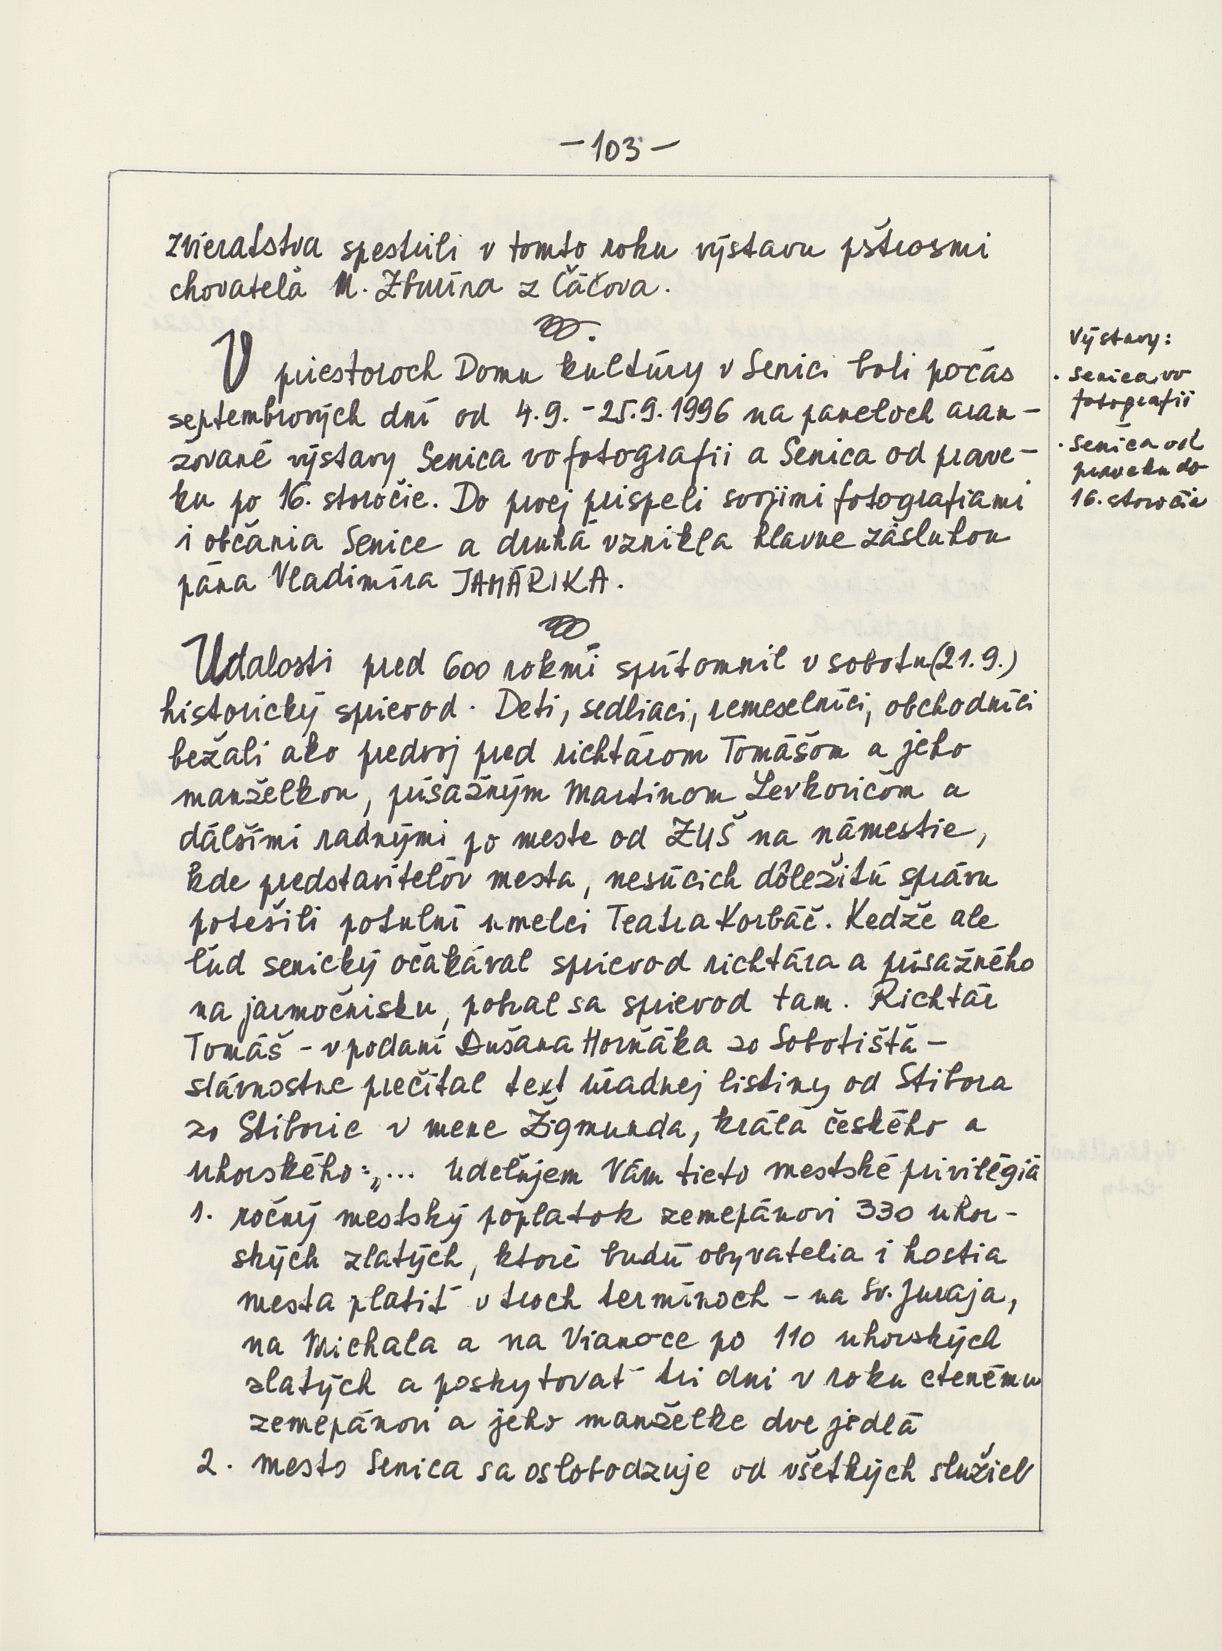 - 103 -
zvieratstva spestrili v tomto roku výstavu pštrosmi
chovateľa M. Zburína z Čáčova.
V priestoroch Domu kultúry v Senici boli počas
septembrových dní od 4.9. - 25.9. 1996 na paneloch aran-
žované výstavy Senica vo fotografii a Senica od prave-
ku po 16. storočie. Do prvej prispeli svojimi fotografiami
i občania Senice a druhá vznikla hlavne zásluhou
pána Vladimíra JAMÁRIKA.
Výstavy:
· Senica vo
fotografii
· Senica od
praveku do
16. storočia
Udalosti pred 600 rokmi sprítomnil v sobotu (21.9.)
historický sprievod. Deti, sedliaci, remeselníci, obchodníci
bežali ako predvoj pred richtárom Tomášom a jeho
manželkou, prísažným Martinom Levkovičom a
ďalšími radnými po meste od ZUŠ na námestie,
kde predstaviteľov mesta, nesúcich dôležitú správu
potešili potulní umelci Teatra Korbáč. Kedže ale
ľud senický očakával sprievod richtára a prísažného
na jarmočnisku, pobral sa sprievod tam. Richtár
Tomáš - v podaní Dušana Horňáka zo Sobotišťa -
slávnostne prečítal text úradnej listiny od Stibora
zo Stiboríc v mene Žigmunda, kráľa českého a
uhorského: „... Udeľujem Vám tieto mestské privilégiá
1. ročný mestský poplatok zemepánovi 330 uhor-
ských zlatých, ktoré budú obyvatelia i hostia
mesta platiť v troch termínoch - na Sv. Juraja,
na Michala a na Vianoce po 110 uhorských
zlatých a poskytovať tri dni v roku ctenému
zemepánovi a jeho manželke dve jedlá
2. mesto Senica sa oslobodzuje od všetkých služieb